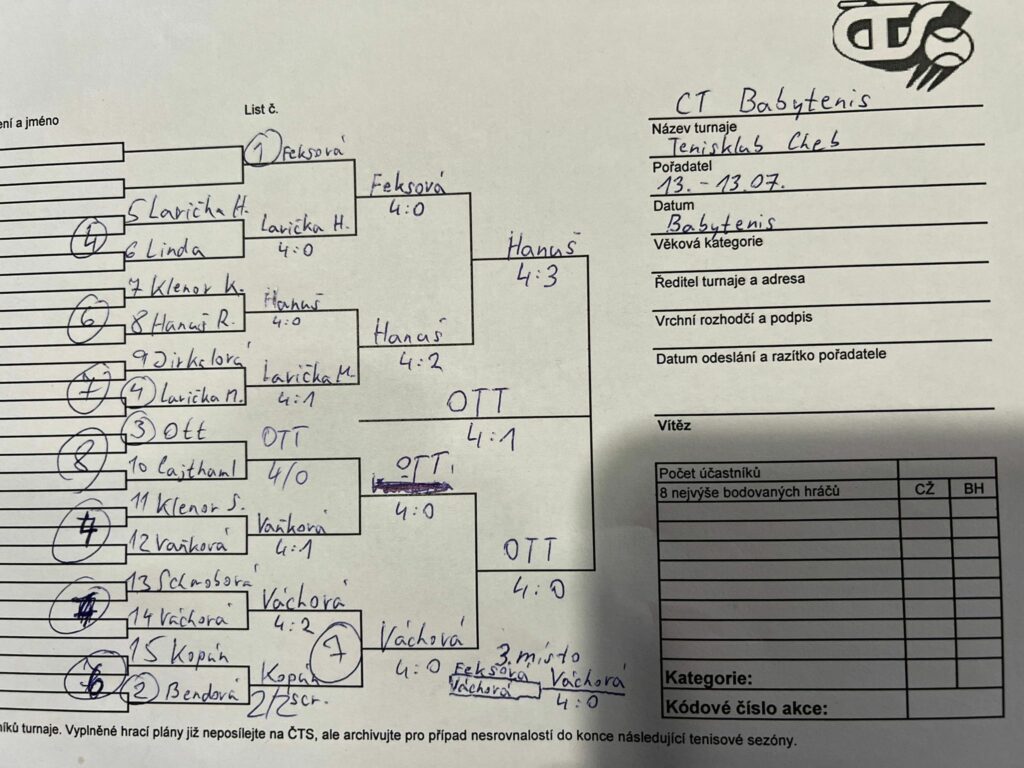 ČTS
List č.
ení a jméno
CT Babytenis
Název turnaje
Tenisklub Cheb
Pořadatel
13. - 13.07.
Datum
Babytenis
Věková kategorie
Ředitel turnaje a adresa
Vrchní rozhodčí a podpis
Datum odeslání a razítko pořadatele
Vítěz
1 Feksová
5 Larička H.
4
6 Linda
7 Klenor K.
6
8 Hanuš R.
9 Dirkslová
7
4 Larička M.
3 Ott
8
10 Cajthaml
11 Klenor S.
12 Vaňková
14 Váchová
15 Kopán
6
2 Bendová
Larička H.
4:0
Hanuš
4:0
Larička M.
4:1
OTT
4/0
Vaňková
4:1
Váchová
4:2
7
Kopán
2/2 scr.
Feksová
4:0
Hanuš
4:2
OTT
4:0
Váchová
4:0
Hanuš
4:3
OTT
4:1
OTT
4:0
3. místo
Feksová
Váchová
Váchová
4:0
Počet účastníků
8 nejvýše bodovaných hráčů CŽ BH
Kategorie:
Kódové číslo akce:
níků turnaje. Vyplněné hrací plány již neposílejte na ČTS, ale archivujte pro případ nesrovnalostí do konce následující tenisové sezóny.